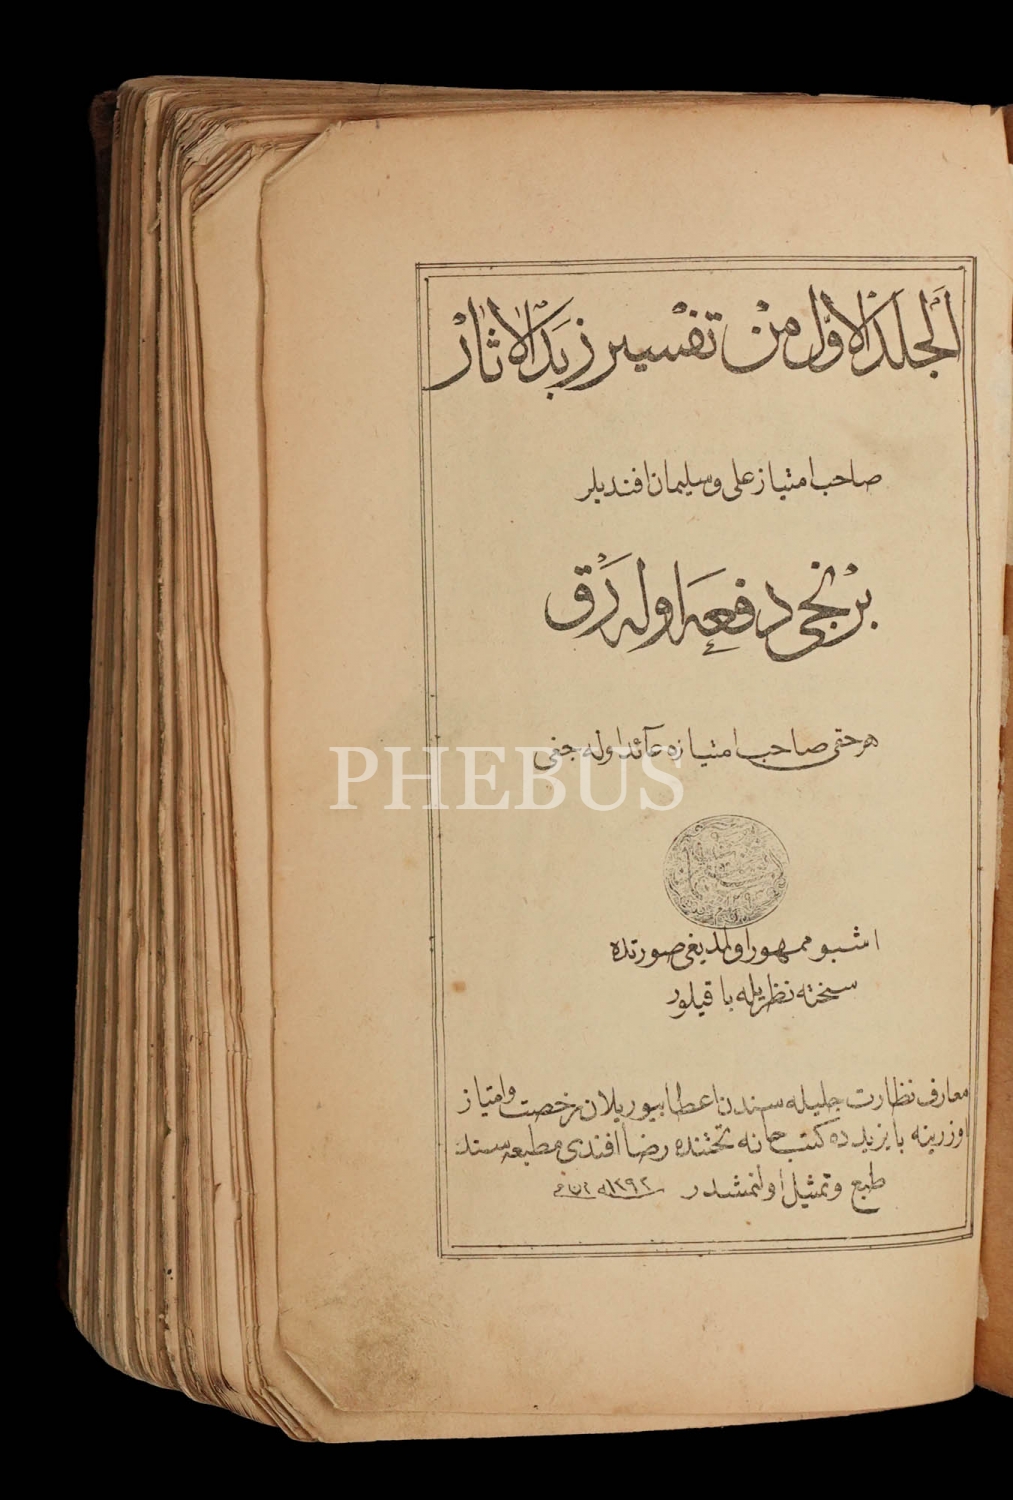 اَلجلدُ الاوّل مِنْ تفسير زبَدُ الاثارْ
صاحب امتياز على و سليمان افنديلر
برنجى دفعه اوله رَق
هر حقى صاحب امتيازه عآئد اوله جقى
PHEBUS
اشبو ممهور اولديغى صورتده
سخته نظريله باقيلور
معارف نظارت جليله سندن اعطا بيوريلان رخصت و امتياز
اوزرينه بايزيدده كتبخانه تحتنده رضا افندى مطبعه سنده
طبع و تمثيل اولنمشدر ١٢٩٢